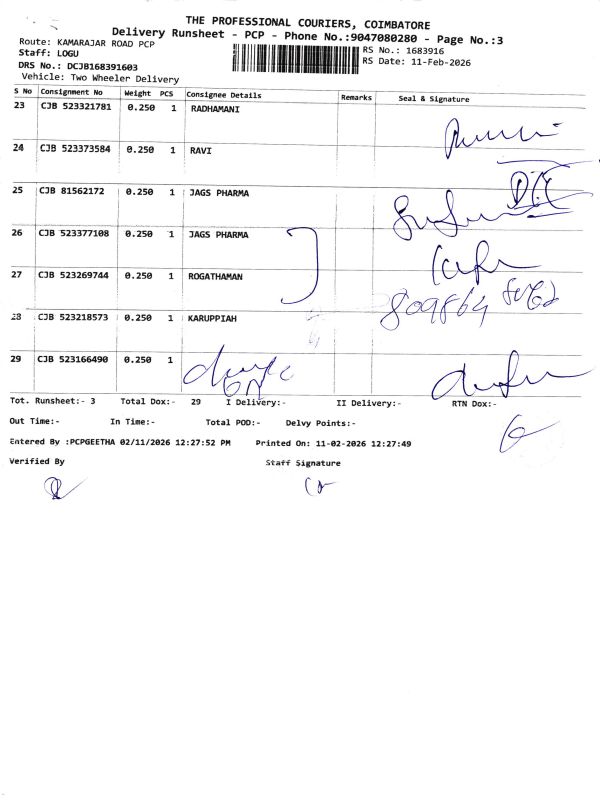 THE PROFESSIONAL COURIERS, COIMBATORE
Delivery Runsheet - PCP - Phone No.:9047080280 - Page No.:3
Route: KAMARAJAR ROAD PCP
RS No.: 1683916
Staff: LOGU
RS Date: 11-Feb-2026
DRS No.: DCJB168391603
Vehicle: Two Wheeler Delivery
S No Consignment No Weight PCS Consignee Details Remarks Seal & Signature
23 CJB 523321781 0.250 1 RADHAMANI
24 CJB 523373584 0.250 1 RAVI
25 CJB 81562172 0.250 1 JAGS PHARMA
26 CJB 523377108 0.250 1 JAGS PHARMA
27 CJB 523269744 0.250 1 ROGATHAMAN
809864
28 CJB 523218573 0.250 1 KARUPPIAH
29 CJB 523166490 0.250 1
Tot. Runsheet:- 3 Total Dox:- 29 I Delivery:- II Delivery:- RTN Dox:-
Out Time:- In Time:- Total POD:- Delvy Points:-
Entered By :PCPGEETHA 02/11/2026 12:27:52 PM Printed On: 11-02-2026 12:27:49
Verified By Staff Signature